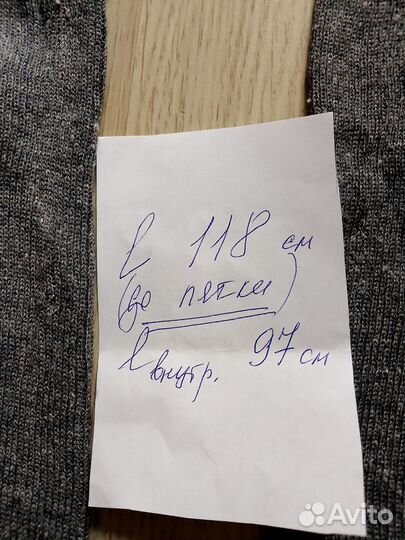 l 118 см
(до пятки)
l внутр. 97 см
Avito